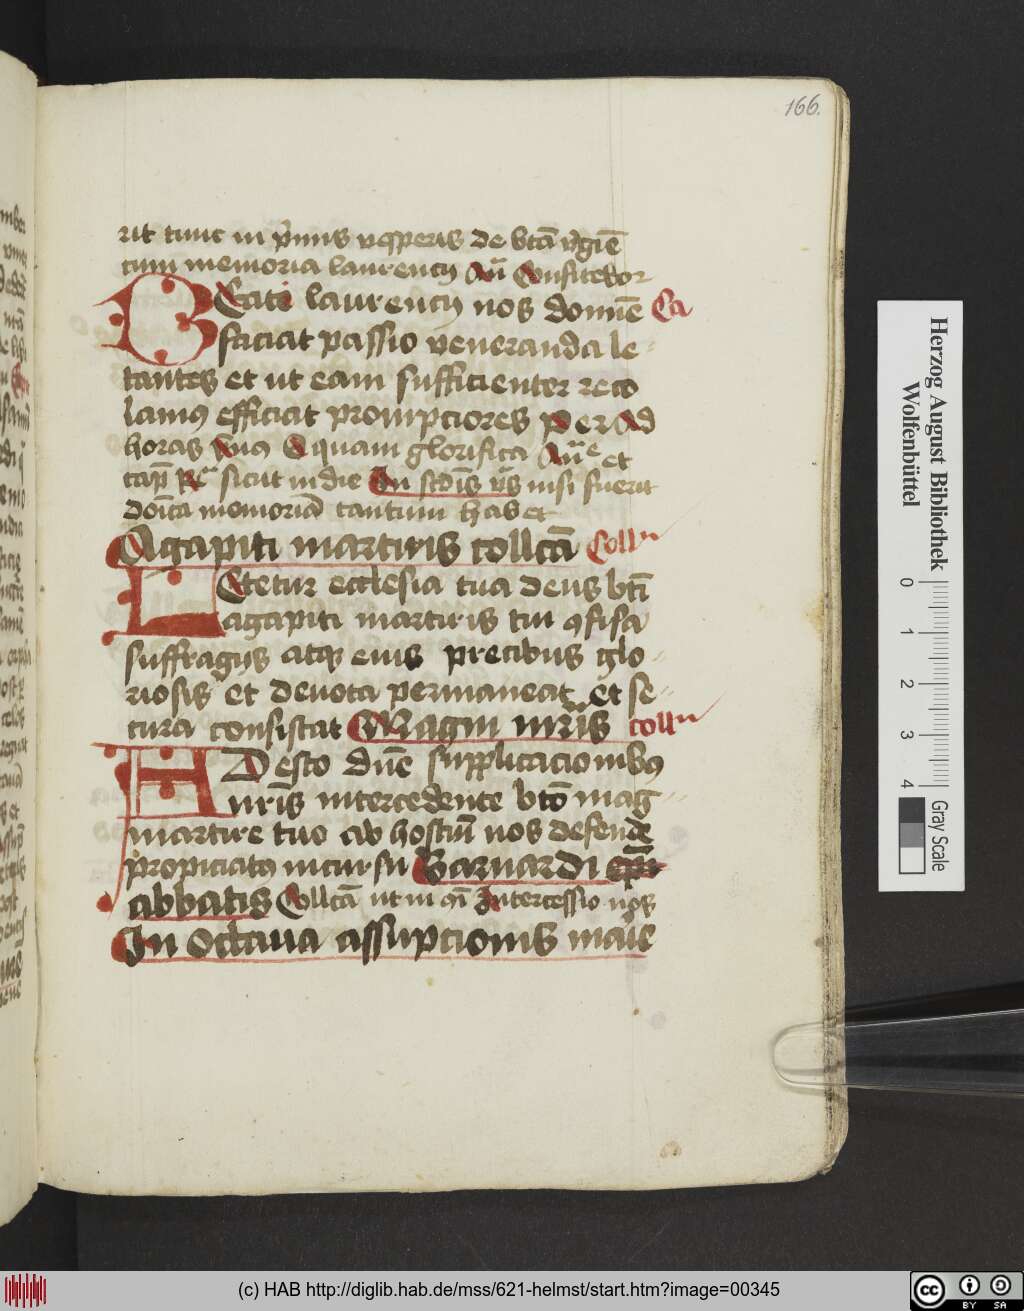 166.
rit tunc in p̄mis vesperis de btā v̾giē
cum memoria laurencij Añ Confitebor
BEati laurencij nos domiē Ca
faciat passio veneranda le
tantes et ut eam sufficienter reco
lamꝯ efficiat prompciores per Ad
horas quam glorifica Añe et
cap̄ R̄ sicut in die In scd̄is v̄s nisi fuerit
doīca memoriā tantum habet
Agapiti martiris collcā Collā
LEtetur ecclesia tua deus bti
agapiti martiris tui ꝯfisa
suffragijs atqꝫ eius precibus glo
riosis et deuota permaneat et se
cura consistat Magni mr̄is collā
ADesto dn̄e supplicacionibꝯ
nr̄is intercedente bto mag
martire tuo ab hostiū nos defende
propiciatꝯ incursu Barnardi
abbatis Collcā ut in Intercessio nos
In Octaua assūpcionis maīe
Herzog August Bibliothek
Wolfenbüttel
0 1 2 3 4
Gray Scale
(c) HAB http://diglib.hab.de/mss/621-helmst/start.htm?image=00345
cc BY SA